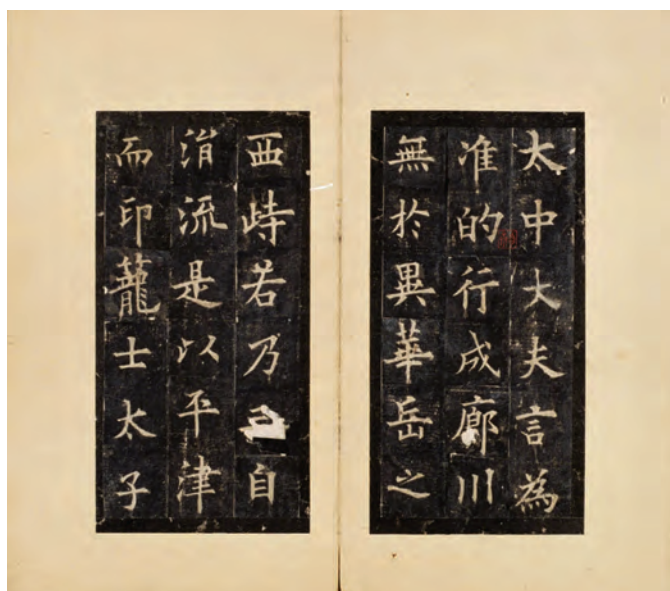 太中大夫言為
准的行成廊川
無於異華岳之
西峙若乃自
涓流是以平津
而印蘢士太子